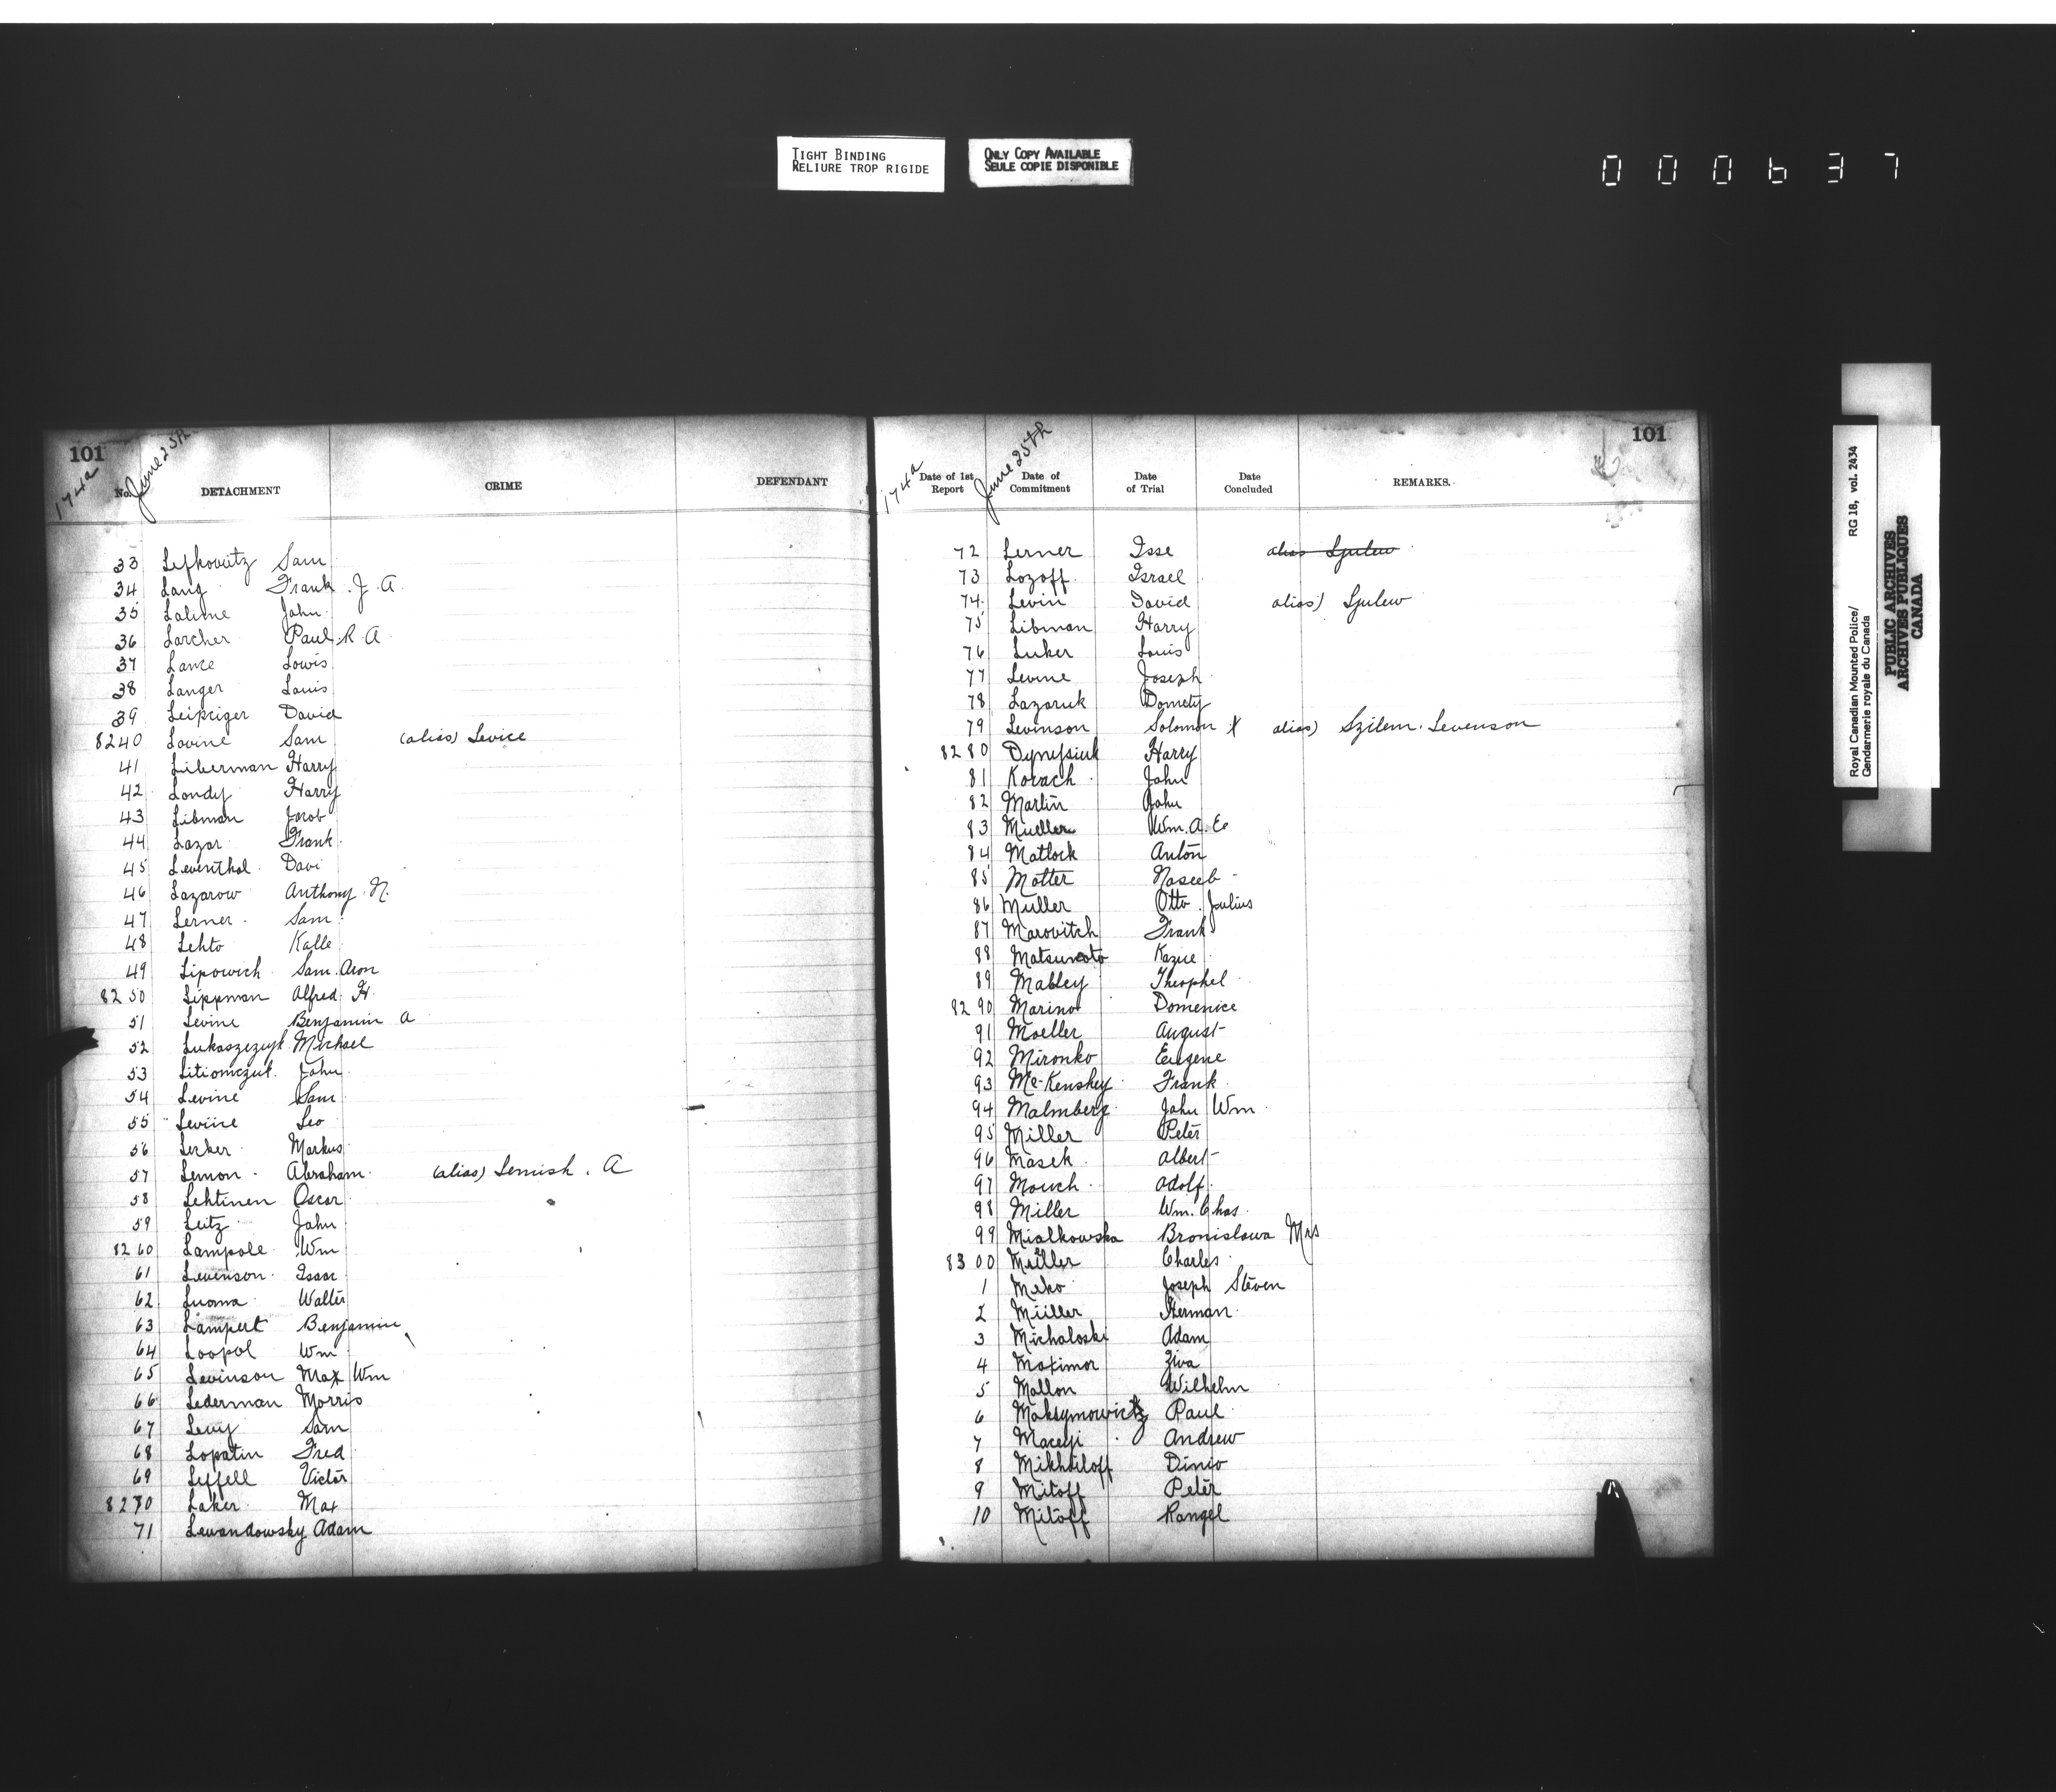 TIGHT BINDING
RELIURE TROP RIGIDE
ONLY COPY AVAILABLE
SEULE COPIE DISPONIBLE
000637
101
174a June 25th
No. DETACHMENT CRIME DEFENDANT
33 Lefkovitz Sam
34 Lang Frank. J. A.
35 Lalime John
36 Larcher Paul R A
37 Lance Lowis
38 Langer Louis
39 Leipziger David
8240 Lavine Sam (alias) Levice
41 Liberman Harry
42 Londy Harry
43 Libman Jacob
44 Lazar Frank
45 Leventhal Davi
46 Lazarow Anthony. N.
47 Lerner Sam
48 Lehto Kalle
49 Lipowich Sam. Aron
8250 Lippman Alfred. H.
51 Levine Benjamin A
52 Lukaszezuyk Michael
53 Litiomczuk John
54 Levine Sam
55 Levine Leo
56 Lerker Markus
57 Lemon Abraham (alias) Lemish. A
58 Lehtinen Oscar
59 Leitz John
8260 Lampole Wm
61 Levenson Isaac
62 Luoma Walter
63 Lampert Benjamin
64 Loopol Wm
65 Levinson Max Wm
66 Lederman Morris
67 Levy Sam
68 Lopatin Fred
69 Leffell Victor
8270 Laker Max
71 Lewandowsky Adam
101
174a June 25th
Date of 1st Report Date of Commitment Date of Trial Date Concluded REMARKS.
72 Lerner Isse alias Ljulew
73 Lozoff Israel
74 Levin David alias) Ljulew
75 Libman Harry
76 Luker Louis
77 Levine Joseph
78 Lazaruk Domety
79 Levinson Solomon X alias) Szilem. Levenson
8280 Dynesiuk Harry
81 Kovach John
82 Martin John
83 Mueller Wm. A. E.
84 Matlock Anton
85 Motter Naseeb
86 Muller Otto Julius
87 Marovitch Frank
88 Matsumoto Kazue
89 Mabley Theophel
8290 Marino Domenice
91 Moeller August
92 Mironko Eugene
93 Mc-Kenskey Frank
94 Malmberg John Wm
95 Miller Peter
96 Masek Albert
97 Mouch Adolf
98 Miller Wm. Chas.
99 Mialkowska Bronislawa Mrs
8300 Müller Charles
1 Meko Joseph Steven
2 Müller Herman
3 Michaloski Adam
4 Maximor Ziva
5 Mallon Wilhelm
6 Maksymowicz Paul
7 Maceyi Andrew
8 Mikhailoff Dinio
9 Mitoff Peter
10 Mitoff Rangel
Royal Canadian Mounted Police/ RG 18, vol. 2434
Gendarmerie royale du Canada
PUBLIC ARCHIVES
ARCHIVES PUBLIQUES
CANADA